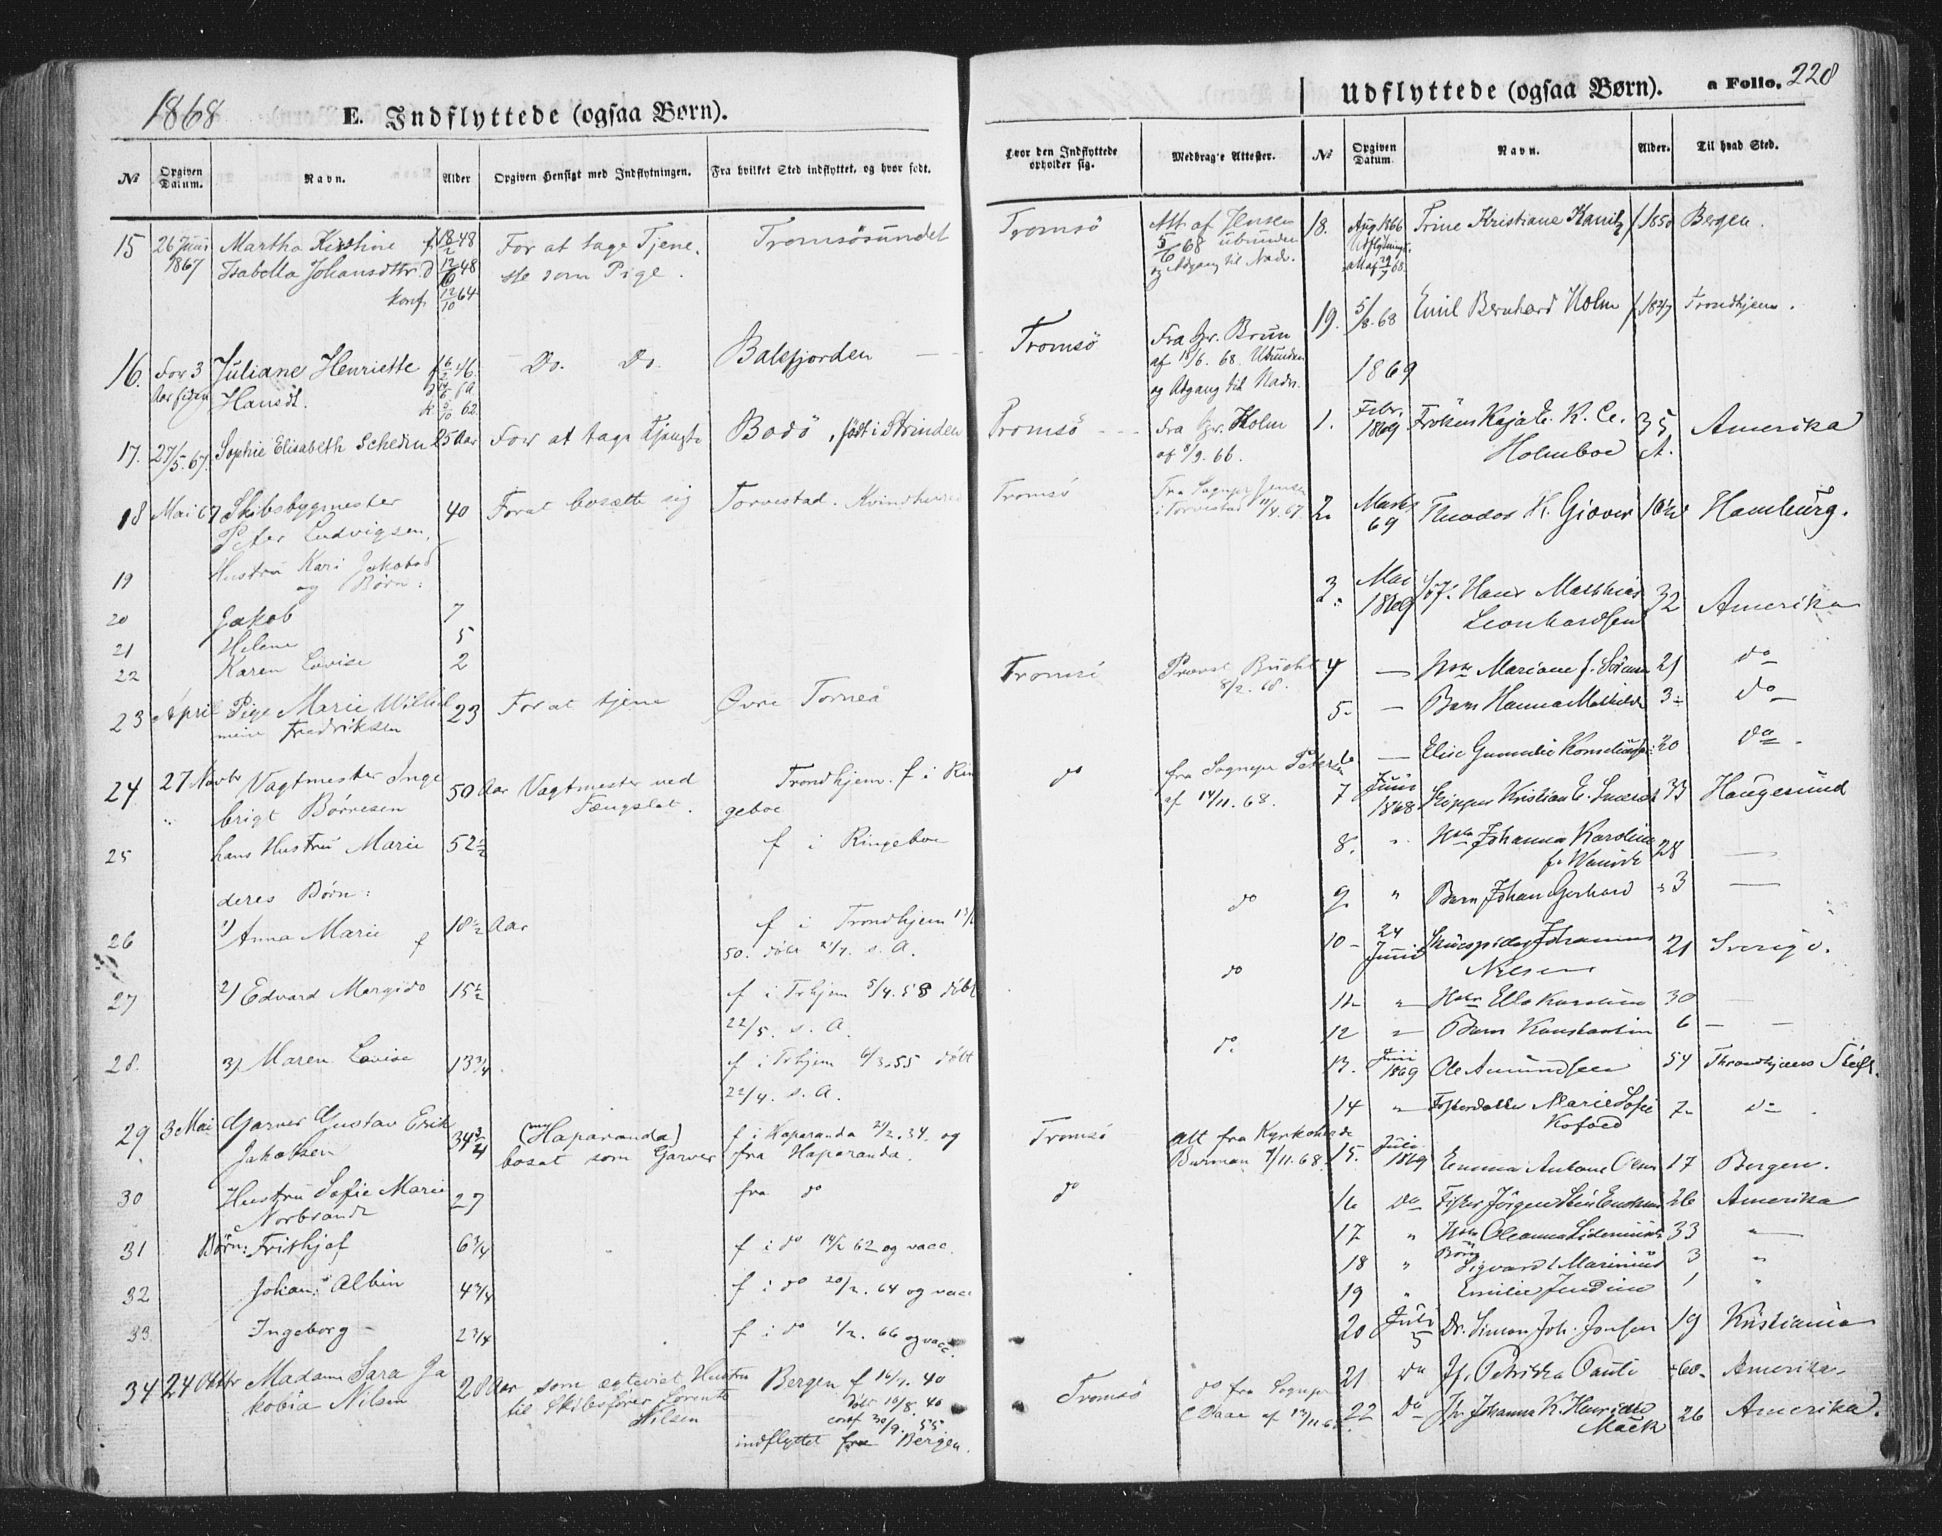 1868
E. Indflyttede (ogsaa Børn).
№ Opgiven Datum. Navn. Alder Opgiven Hensigt med Indflytningen. Fra hvilket Sted indflyttet, og hvor født.
15 26 Juni 1867 Martha Kristine f 18/2 48 For at tage Tjene- Tromsøsundet
Isabella Johansdttr. d 12/6 48 ste som Pige.
konf. 12/10 64
16. For 3 Juliane Henriette f 6/2 46. Do. Do. Balsfjorden
Aar siden Hansdt. k. 5/10 62
17. 27/5. 67. Sophie Elisabeth Schedin 25 Aar For at tage Tjeneste Bodö, født i Strinden
18 Mai 67 Skibsbygmester 40 For at bosætte sig Torvestad. Kvindherred
Peter Ludvigsen,
19 Hustru Kari Jakobsd
og Børn:
20 Jakob 7
21 Helene 5
22 Karen Lovise 2
23 April Pige Marie Wilhel 23 For at tjene Øvre Torneå
mine Fredriksen
24 27 Novbr Vagtmester Inge 50 Aar Vagtmester ved Trondhjem. f i Rin
brigt Børresen Fængslet. geboe
25 hans Hustru Marie 52½ f i Ringeboe
deres Børn:
26 1) Anna Marie f 18½ Aar f i Trondhjem
50. døbt 21/7. s. A.
27 2) Edvard Margido 15½ f i Trhjem 5/4. 53 døbt
22/5. s. A.
28. 3) Maren Lovise 13¾ f i Trhjem 6/3. 55 døbt
22/4. s. A.
29. 3 Mai Garver Gustav Erik 34¾ (Haparanda) f i Haparanda 2/2. 34. og
Jakobsen bosat som Garver fra Haparanda.
30 Hustru Sofie Marie 27 fra do
Norbrandt
31 Børn: Frithjof 6¾ f i do 14/2 62 og vacc.
32 Johan Albin 4¾ f i do 20/2. 64 og vacc
33. Ingeborg 2¾ f i do 1/2. 66 og vacc.
34 24 Oktbr Madam Sara Ja 28 Aar som egteviet Hustru Bergen f 16/7. 40
kobia Nilsen til Skibsfører Lorents døbt 16/8. 40
Nilsen conf 30/9. 55
indflyttet fra Bergen.
Udflyttede (ogsaa Børn). a Folio. 228
Hvor den Indflyttede opholder sig. Medbragte Attester. № Opgiven Datum. Navn. Alder. Til hvad Sted.
Tromsö Att. af Jensen 18. Aug 1866 Trine Kristiane Kanitz f 1850 Bergen.
5/6 68 ubunden Udflytnings-
og Adgang til Nadv. att af 29/7 68.
19. 5/8. 68 Emil Bernhard Holm f. 1847 Trondhjem.
Tromsö Fra Hr. Brun
af 18/6. 68. Ubunden 1869
og Adgang til Nadv.
Tromsö Fra Hr. Holm 1. Febr. 1869 Frøken Kaja E. K. C. 35 A. Amerika
af 8/9. 66. Holmboe
Tromsö Fra Sognepr Jensen
i Torvestad 11/4. 67 2. Marts 69 Theodor H. Giæver 16½ Hamburg.
3. Mai 1869 Hans Mathias 32 Amerika
Leonhardsen
Tromsö Provst Bucht 4 — Hstr Mariane f. Sörensen 21 do
8/2. 68. 5. — Barn Hanna Mathilde 3 do
6 — Elise Gunnelie 20 do
do fra Sognepr Petersen
af 14/11. 68. 7 Juni 1868 Skipper Kristian E. 33 Haugesund
8. " Hstr Johanna Karoline 28 —
do 9. " Barn Johan Gerhard 3 —
do 10 24 Juni Johannes 21 Sverige.
Nilsen
11 " Hstr Ella Karoline 30 —
do 12 " Barn Konstantin 6 — —
13. Juni 1869 Ole Amundsen 54 Throndhjems Stift.
14 " Fosterdatter Marie Sofie 7 do
Kofoed
Tromsö Att fra Kyrkoherde
Burman 7/11. 68. 15. Juli 1869 Emma Antone Olsen 17 Bergen.
do 16 do Fisker Jörgen 26 Amerika
17 " Hstr Oleanna 33 "
18 " Børn Sigvard Marinius 3 "
19 " Emilie Jendine 1 "
20 Juli 5 Dr. Simon Joh. Jensen 19 Kristiania
21 do Jf. Petrikka 60 Amerika.
Tromsö do fra Sognepr
Daae af 13/11 68. 22 do Jfr Johanna K. Henriette 26 Amerika.
Mack